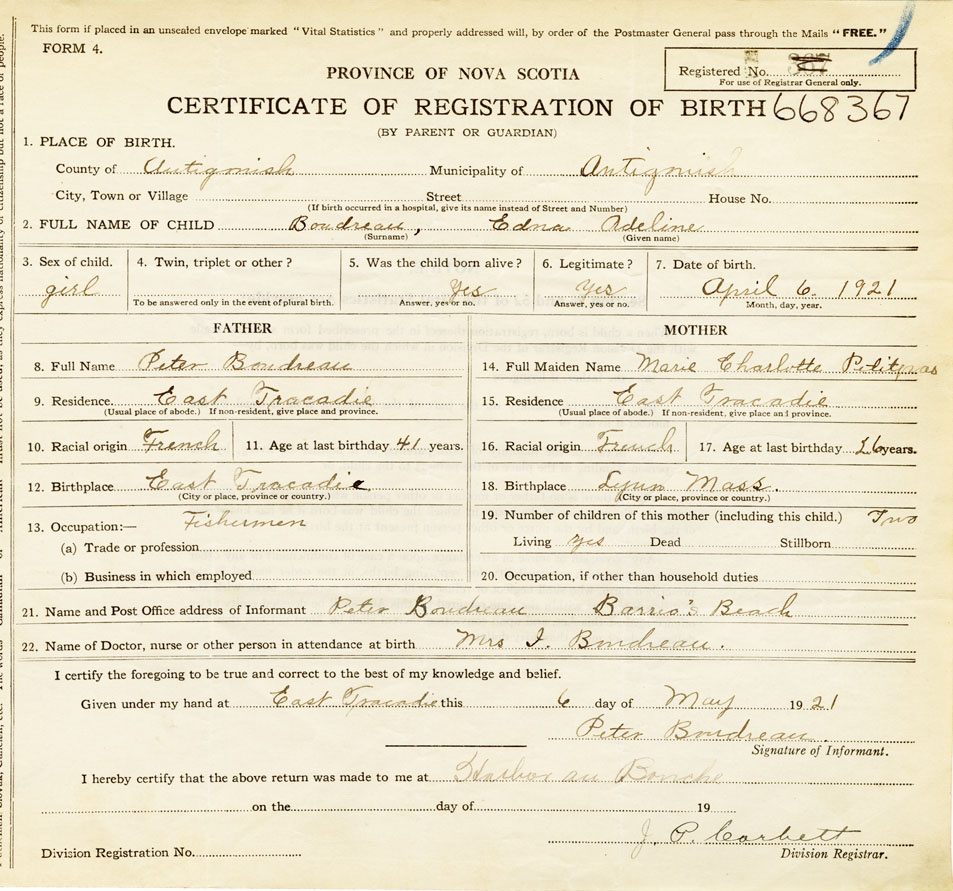 This form if placed in an unsealed envelope marked "Vital Statistics" and properly addressed will, by order of the Postmaster General pass through the Mails "FREE."
FORM 4.
PROVINCE OF NOVA SCOTIA
Registered No.
For use of Registrar General only.
CERTIFICATE OF REGISTRATION OF BIRTH 668367
(BY PARENT OR GUARDIAN)
1. PLACE OF BIRTH.
County of Antigonish Municipality of Antigonish
City, Town or Village Street House No.
(If birth occurred in a hospital, give its name instead of Street and Number)
2. FULL NAME OF CHILD Boudreau, Edna Adeline
(Surname) (Given name)
3. Sex of child. 4. Twin, triplet or other? 5. Was the child born alive? 6. Legitimate? 7. Date of birth.
girl yes yes April 6. 1921
To be answered only in the event of plural birth. Answer, yes or no. Answer, yes or no. Month, day, year.
FATHER MOTHER
8. Full Name Peter Boudreau 14. Full Maiden Name Marie Charlotte Petitpas
9. Residence East Tracadie 15. Residence East Tracadie
(Usual place of abode.) If non-resident, give place and province. (Usual place of abode.) If non-resident, give place and province.
10. Racial origin French 11. Age at last birthday 41 years. 16. Racial origin French 17. Age at last birthday 26 years.
12. Birthplace East Tracadie 18. Birthplace Lynn Mass.
(City or place, province or country.) (City or place, province or country.)
13. Occupation:— Fishermen 19. Number of children of this mother (including this child.) Two
(a) Trade or profession Living yes Dead Stillborn
(b) Business in which employed 20. Occupation, if other than household duties
21. Name and Post Office address of Informant Peter Boudreau Barrio's Beach
22. Name of Doctor, nurse or other person in attendance at birth Mrs J. Boudreau.
I certify the foregoing to be true and correct to the best of my knowledge and belief.
Given under my hand at East Tracadie this 6 day of May 1921
Peter Boudreau.
Signature of Informant.
I hereby certify that the above return was made to me at Harbor au Bouche
on the day of 19
J. P. Corbett
Division Registration No. Division Registrar.